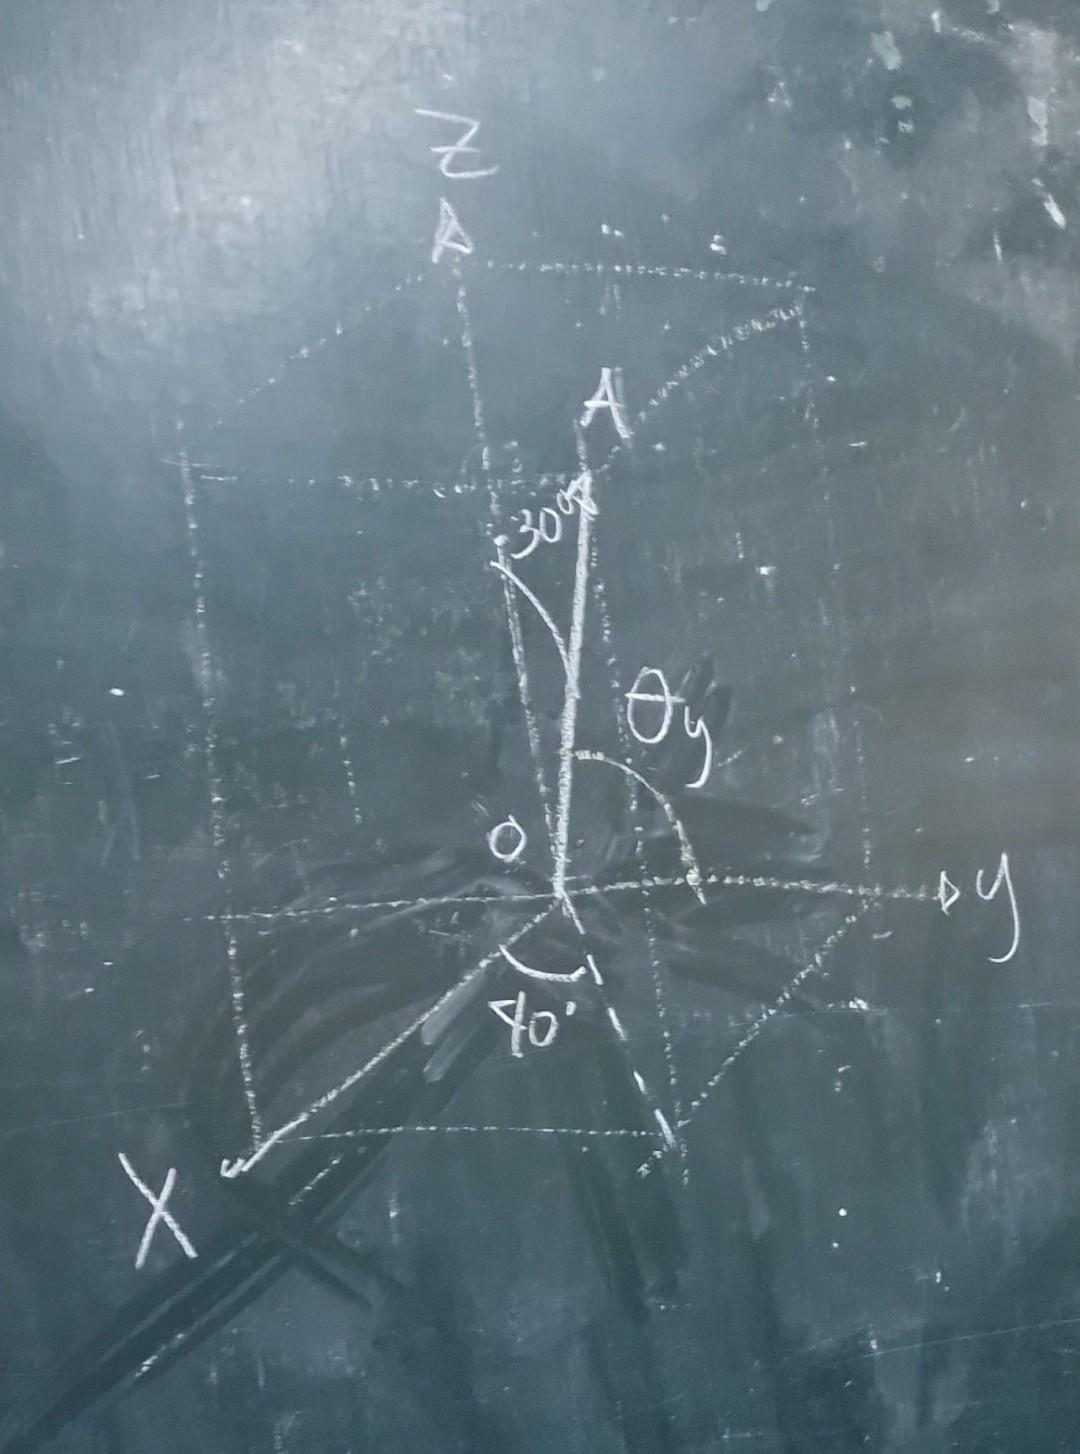 Z
A
30°
θy
O
y
40°
X